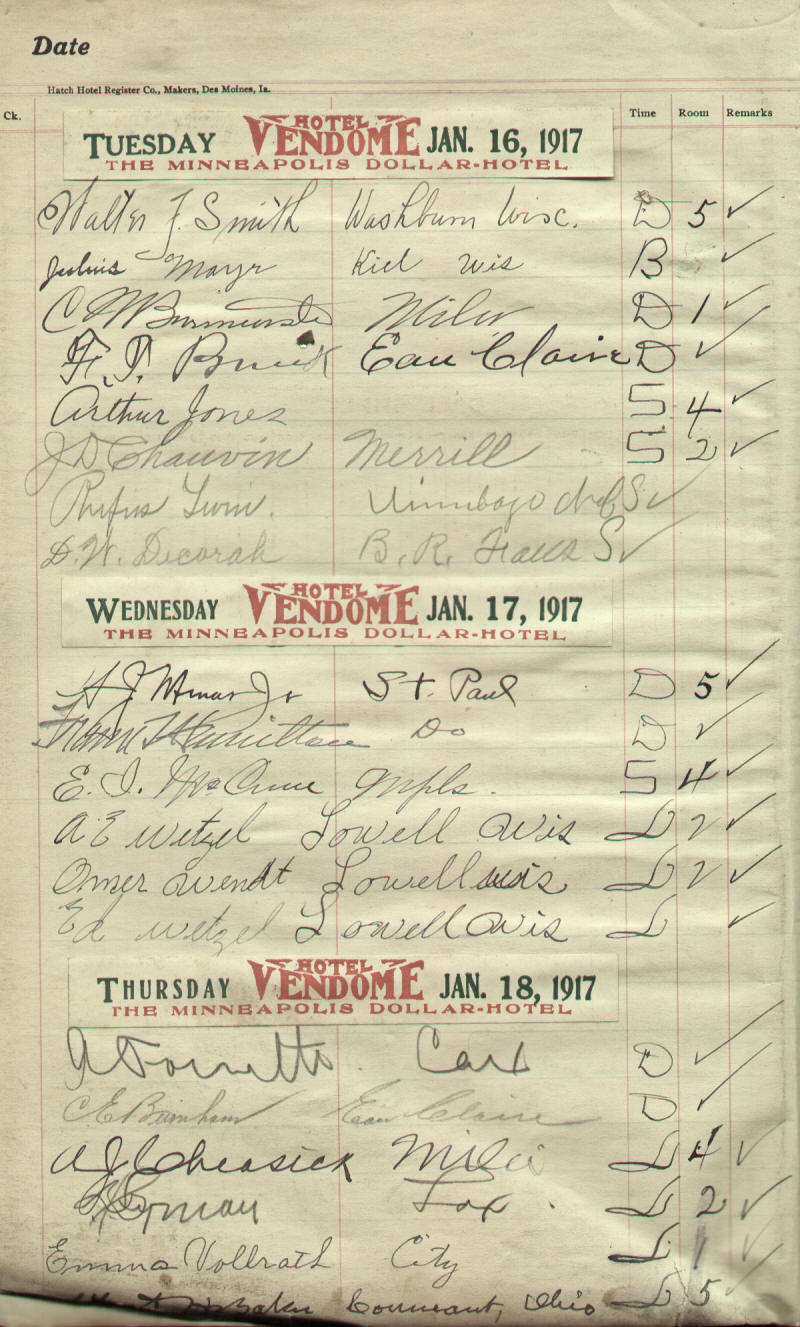 Date
Hatch Hotel Register Co., Makers, Des Moines, Ia.
Ck. Time Room Remarks
TUESDAY HOTEL VENDOME JAN. 16, 1917
THE MINNEAPOLIS DOLLAR-HOTEL
Walter F. Smith Washburn Wisc. D 5 ✓
Julius Mayr Kiel Wis B ✓
C M D 1 ✓
F. J. Eau Claire D ✓
Arthur Jones S 4 ✓
J D Chauvin Merrill S 2 ✓
Rufus S ✓
D. W. Decorah B. R. Falls S ✓
WEDNESDAY HOTEL VENDOME JAN. 17, 1917
THE MINNEAPOLIS DOLLAR-HOTEL
H J Jr St. Paul D 5 ✓
Frank Hamilton Do D ✓
E. I. Mpls. S 4 ✓
A E Wetzel Lowell Wis L 2 ✓
Omer Wendt Lowell Wis L 2 ✓
Ed Wetzel Lowell Wis L ✓
THURSDAY HOTEL VENDOME JAN. 18, 1917
THE MINNEAPOLIS DOLLAR-HOTEL
D ✓
C E Burnham Eau Claire D ✓
A J Cheasick L 4 ✓
L 2 ✓
Emma Vollrath City L 1 ✓
Baker Conneaut, Ohio L 5 ✓